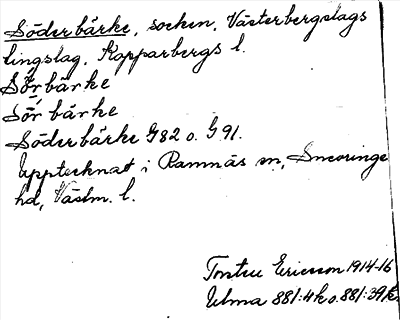 Söderbärke, socken, Västerbergslags
tingslag, Kopparbergs l.
Sörbärke
Sör bärke
Söderbärke G82 o. G91.
Upptecknat i Ramnäs sn, Snevringe
hd, Västm. l.
Torsten Ericsson 1914-16
Ulma 881:4k o. 881:39k.